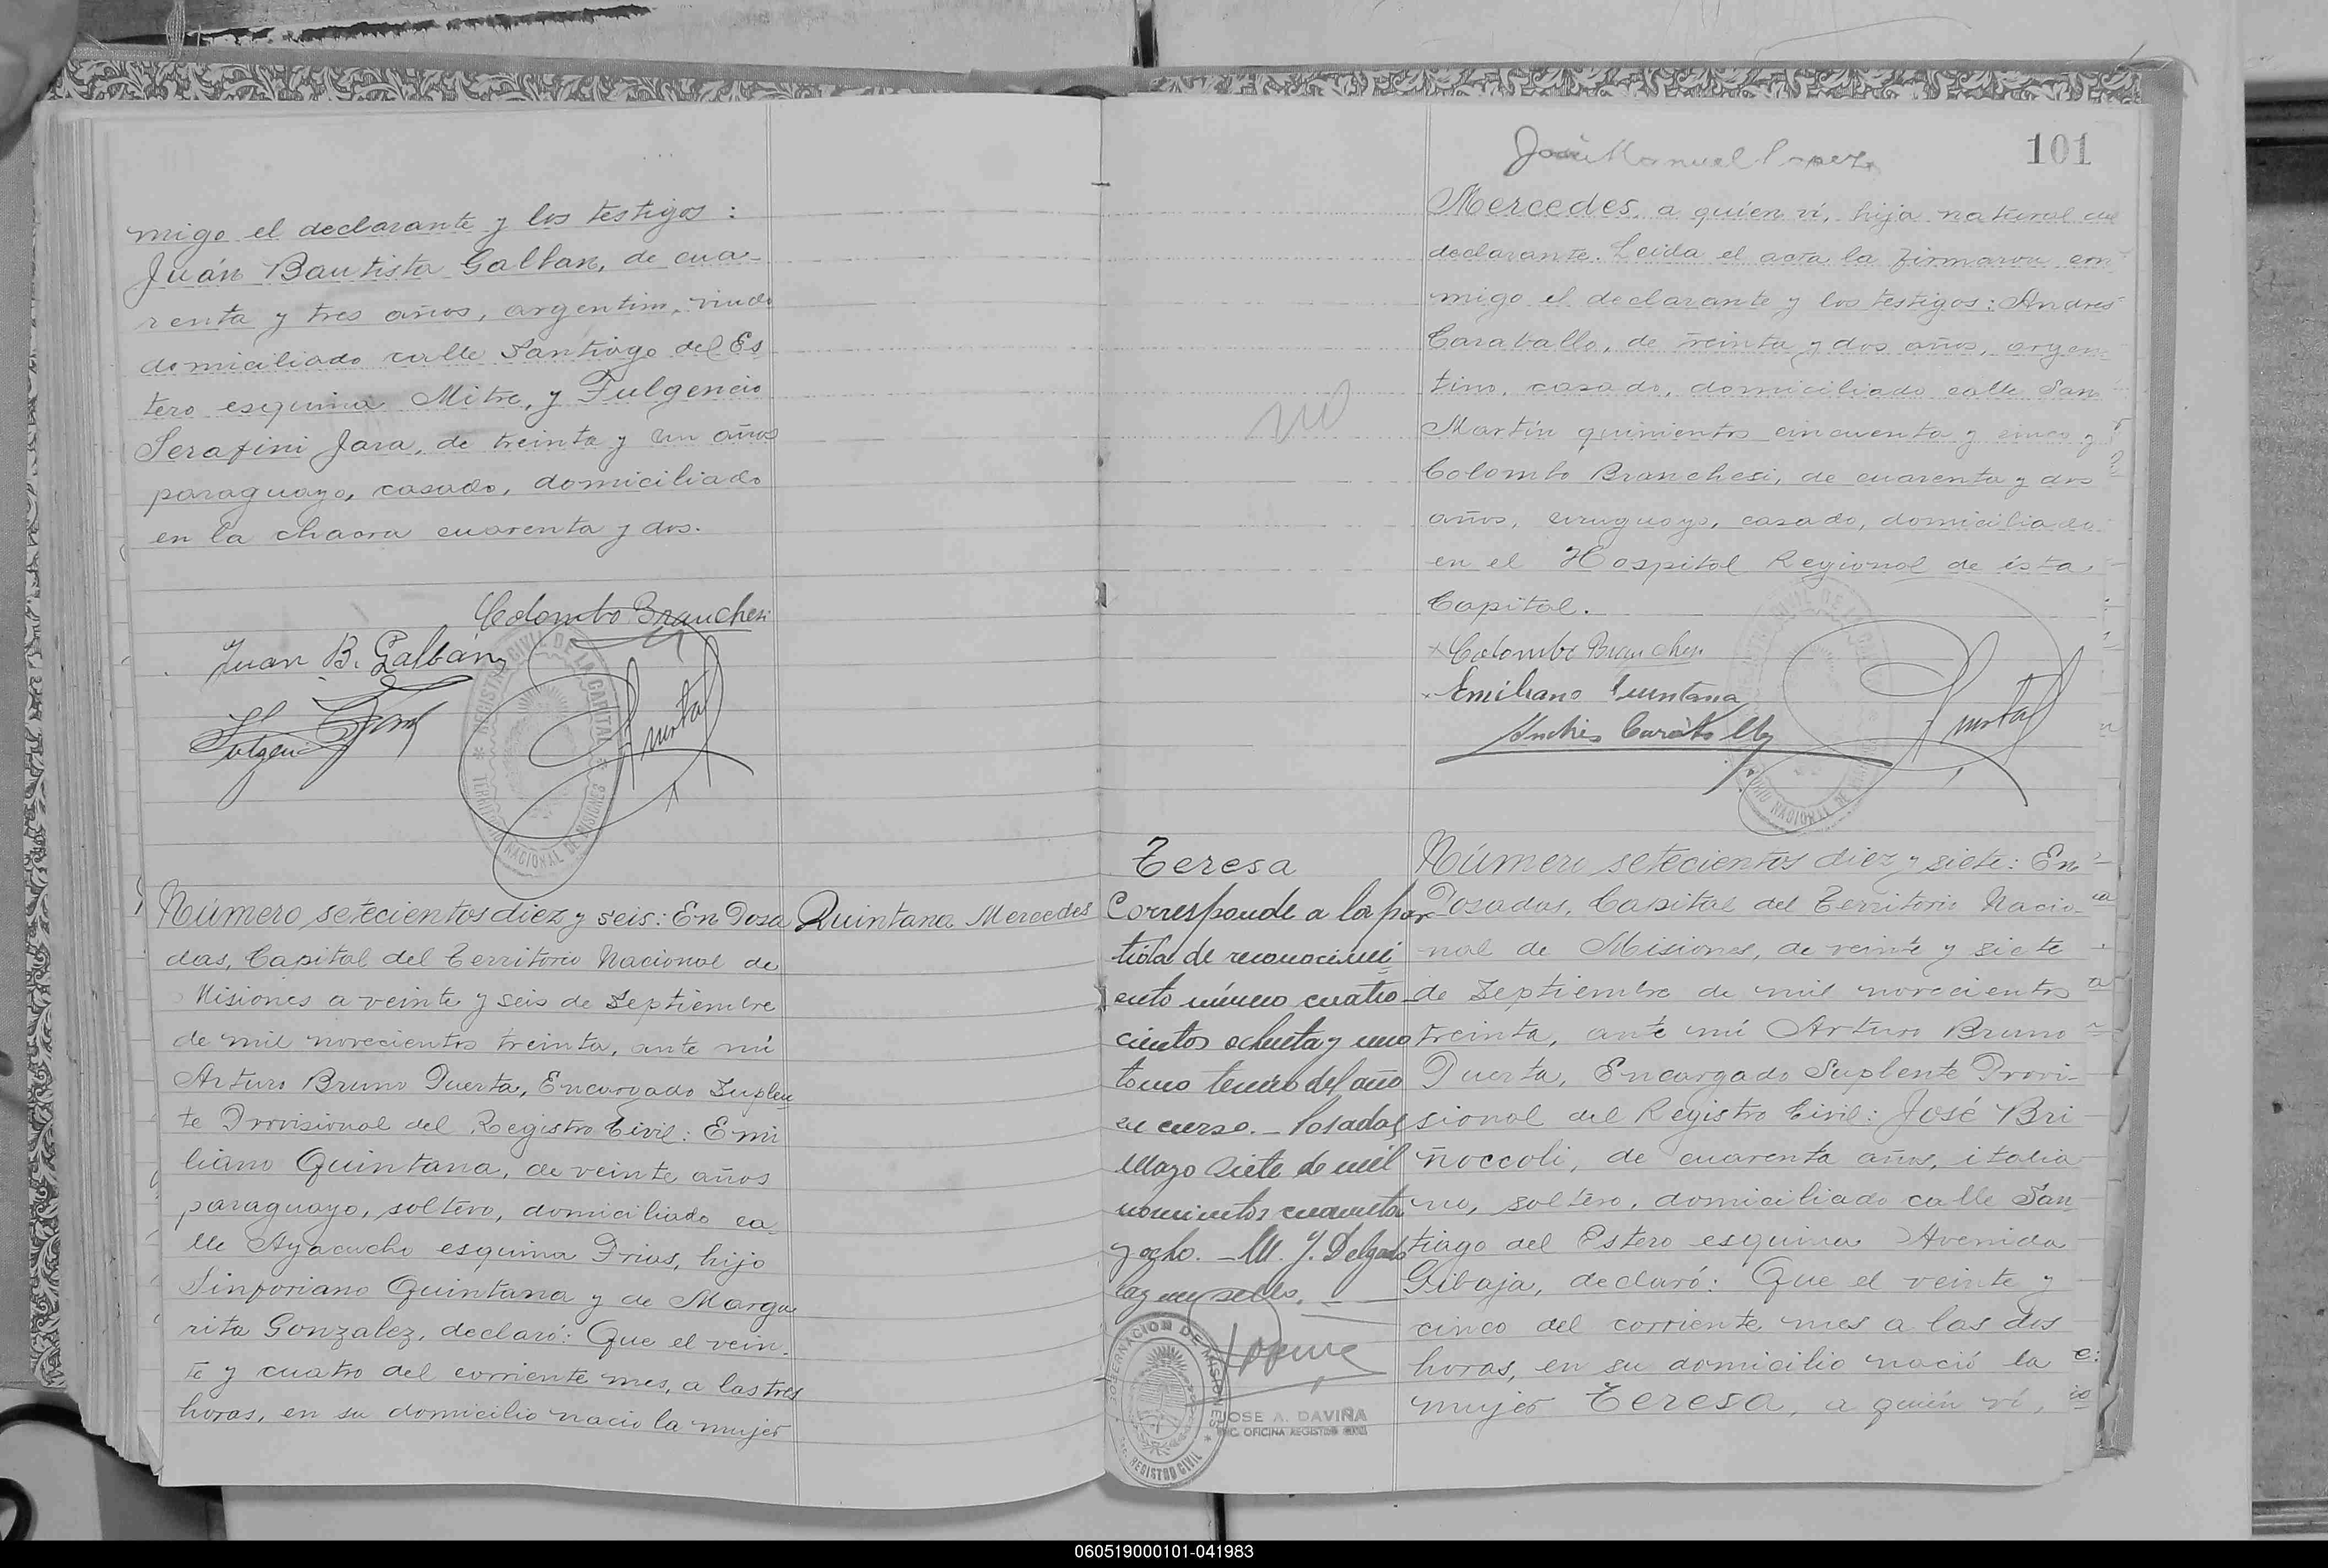 migo el declarante y los testigos:
Juán Bautista Galban, de cua-
renta y tres años, argentino, viudo
domiciliado calle Santiago del Es
tero esquina Mitre, y Fulgencio
Serafini Jara, de treinta y un años
paraguayo, casado, domiciliado
en la chacra cuarenta y dos.
Colombo Branchesi
Juan B. Galbán
REGISTRO CIVIL DE LA CAPITAL
TERRITORIO NACIONAL DE MISIONES
Número setecientos diez y seis: En Posa
Quintana Mercedes
das, Capital del Territorio Nacional de
Misiones a veinte y seis de Septiembre
de mil novecientos treinta, ante mi
Arturo Bruno Puerta, Encargado Suplen
te Provisional del Registro Civil: Emi
liano Quintana, de veinte años
paraguayo, soltero, domiciliado ca
lle Ayacucho esquina Frias, hijo
Sinforiano Quintana y de Marga
rita Gonzalez, declaró: Que el vein-
te y cuatro del corriente mes, a las tres
horas, en su domicilio nacio la mujer
José Manuel Lopez
101
Mercedes, a quien ví, hija natural del
declarante. Leida el acta la firmaron con
migo el declarante y los testigos: Andres
Caraballo, de treinta y dos años, argen
tino, casado, domiciliado calle San
Martín quinientos cincuenta y cinco y
Colombo Branchesi, de cuarenta y dos
años, uruguayo, casado, domiciliado
en el Hospital Regional de ésta
Capital.
Colombo Branchesi
Emiliano Quintana
Andres Caraballo
Teresa
Corresponde a la par
tida de reconocimi
ento número cuatro
cientos ochenta y uno
tomo tercero del año
en curso. - Posadas
Mayo siete de mil
novecientos cuarenta
y ocho. - M. J. Delgado
hay un sello.
GOBERNACION DE MISIONES
REGISTRO CIVIL
JOSE A. DAVIÑA
ENC. OFICINA REGISTRO CIVIL
Número setecientos diez y siete: En
Posadas, Capital del Territorio Nacio-
nal de Misiones, de veinte y siete
de Septiembre de mil novecientos
treinta, ante mi Arturo Bruno
Puerta, Encargado Suplente Provi-
sional del Registro Civil: José Bri
ñoccoli, de cuarenta años, italia
no, soltero, domiciliado calle San
tiago del Estero esquina Avenida
Gibaja, declaró: Que el veinte y
cinco del corriente mes a las dos
horas, en su domicilio nació la
mujer Teresa, a quién ví,
060519000101-041983